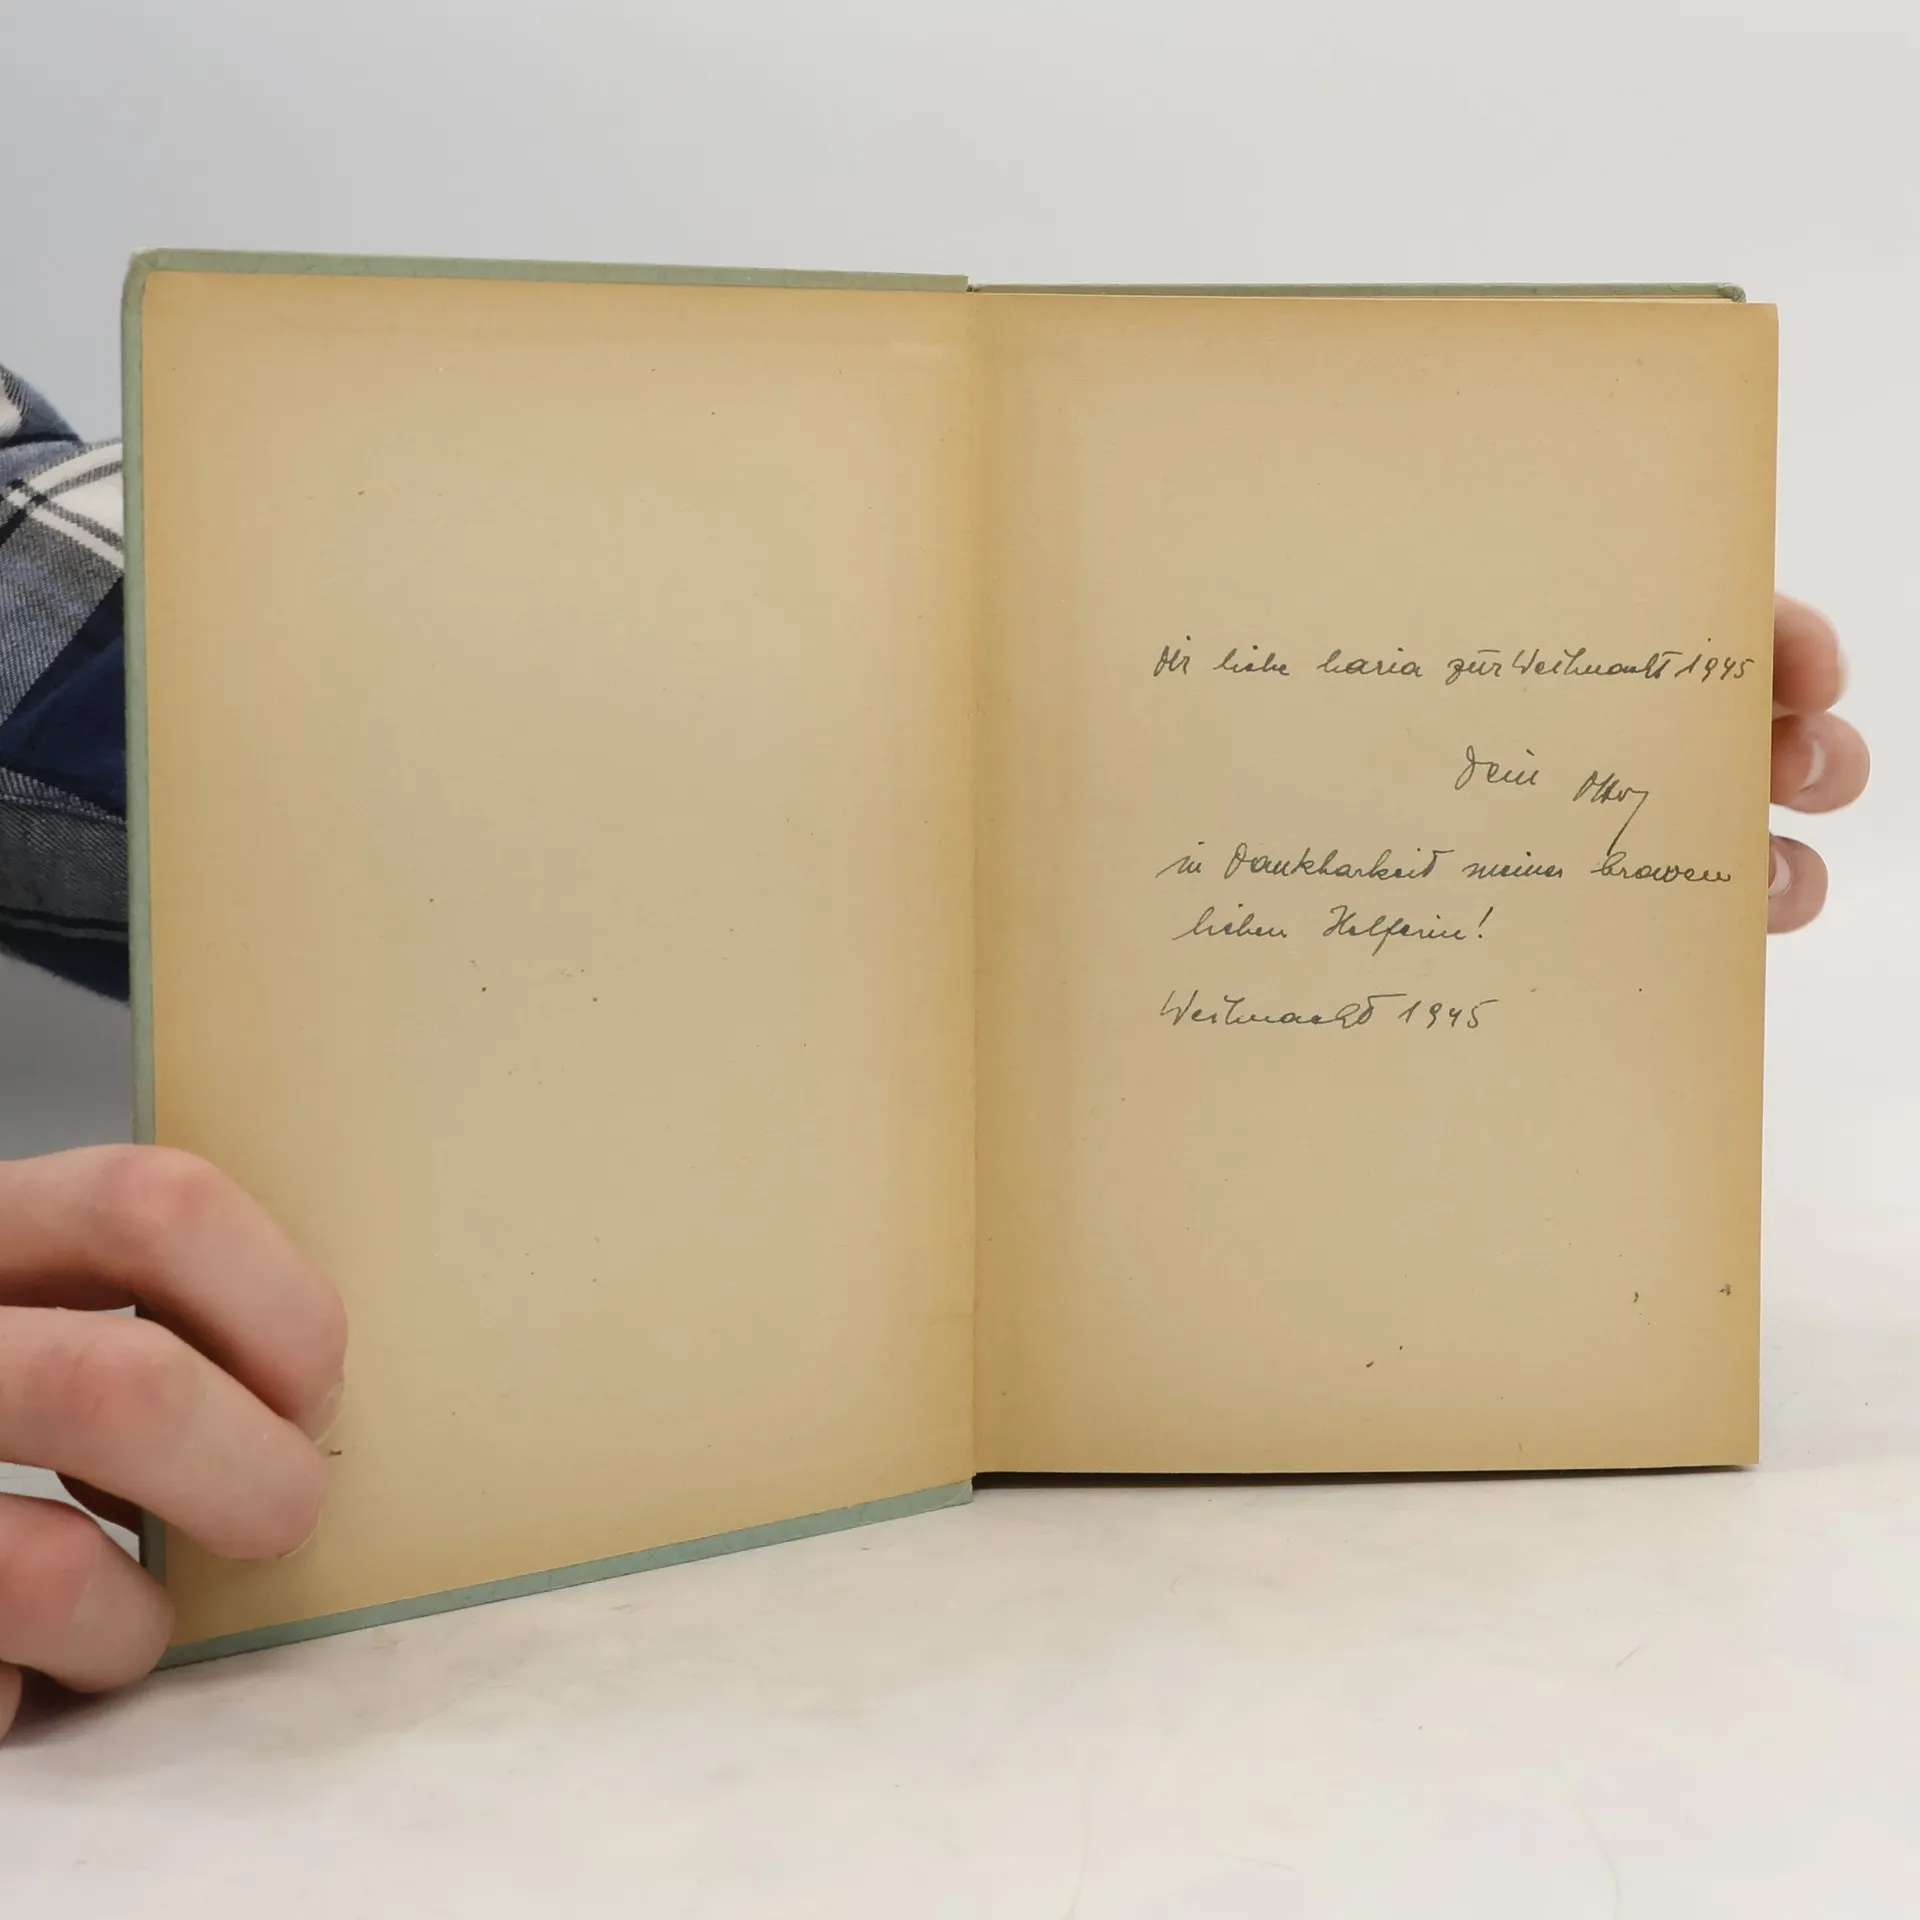 Dir liebe Maria zur Weihnacht 1945
Dein Otto
in Dankbarkeit meiner braven
lieben Helferin!
Weihnacht 1945